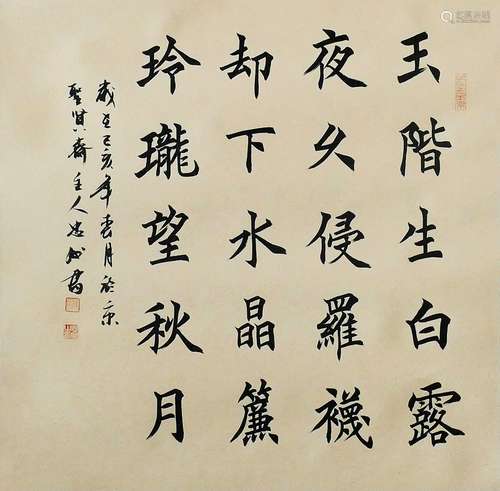 玉階生白露
夜久侵羅襪
却下水晶簾
玲瓏望秋月
歲在己亥年
月於京
主人
書